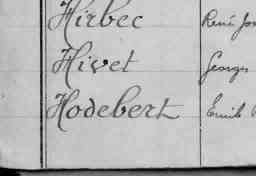 Hirbec René
Hivet Georges
Hodebert Emile